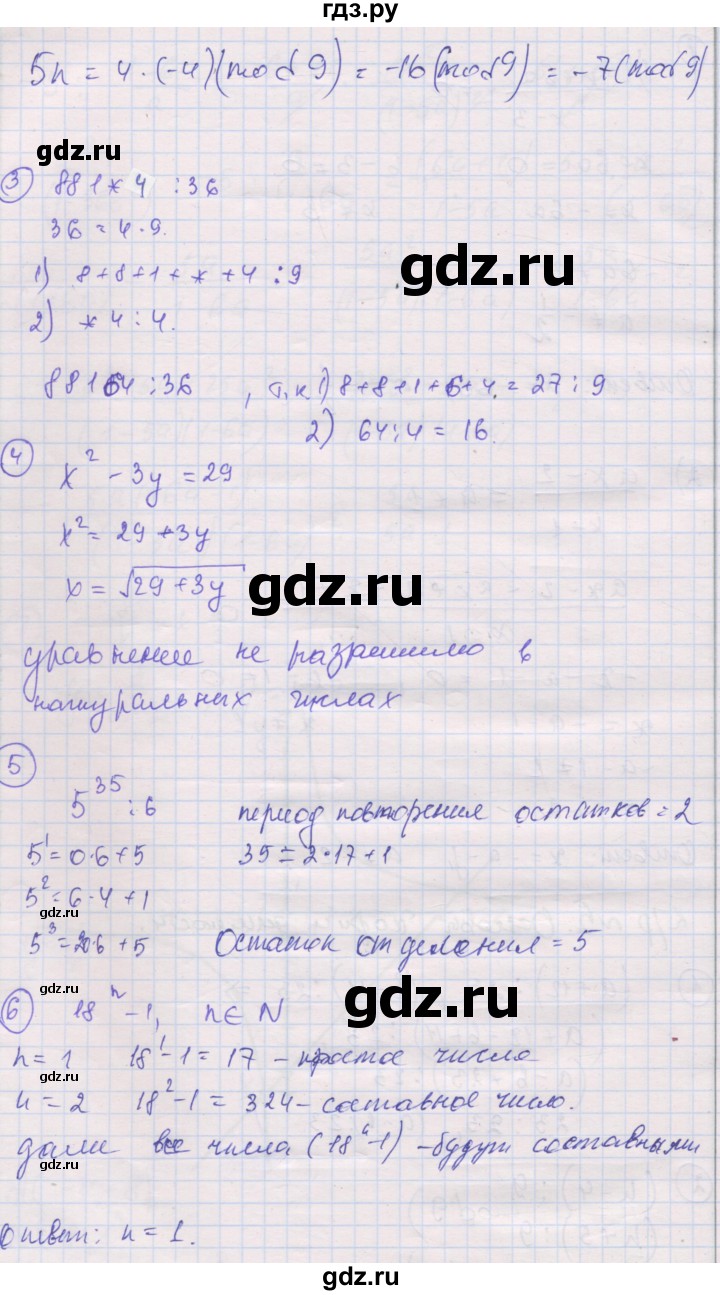 гдз.ру
5n = 4 · (-4)(mod 9) = -16(mod 9) = -7(mod 9)
gdz.ru
3 881*4 : 36
36 = 4·9.
1) 8+8+1+*+4 : 9
gdz.ru
2) *4 : 4.
88164 : 36 , т.к 1) 8+8+1+6+4 = 27 : 9
2) 64 : 4 = 16.
4 x² - 3y = 29
x² = 29 + 3y
x = √29+3y
gdz.ru
уравнение не разрешимо в
натуральных числах
5
5³⁵ : 6 период повторения остатков = 2
5¹ = 0·6+5 35 = 2·17+1
5² = 6·4+1
gdz.ru
5³ = 20·6 + 5 Остаток от деления = 5
gdz.ru
6 18ⁿ - 1, n ∈ N
n = 1 18¹-1 = 17 - простое число
gdz.ru
n = 2 18²-1 = 324 - составное число.
дали все числа (18ⁿ-1) - будут составными
gdz.ru
ответ: n = 1.
gdz.ru